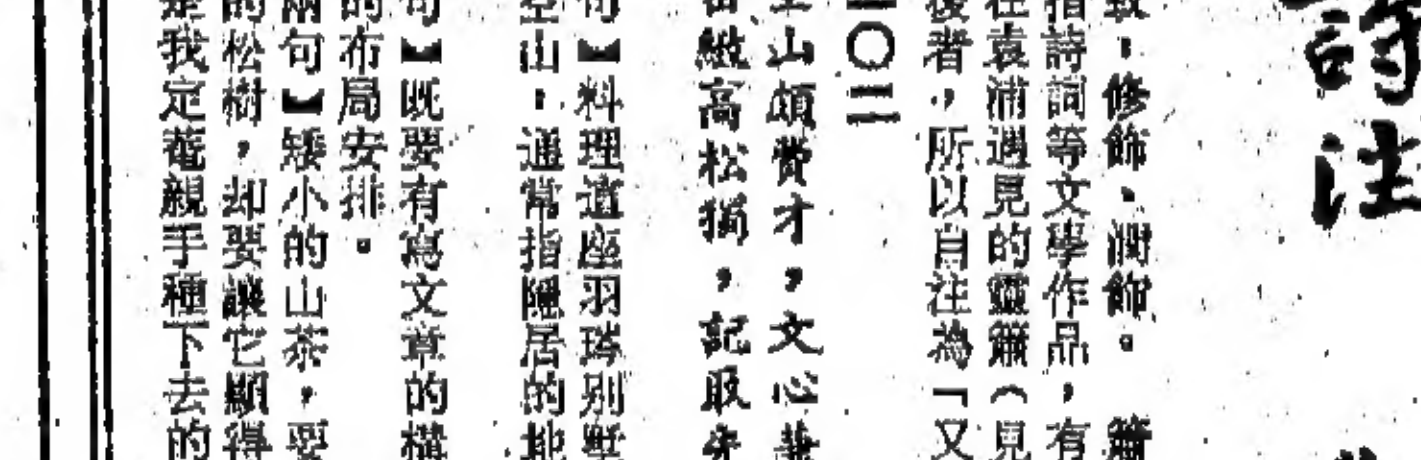 詩注
修飾、潤飾。
指詩詞等文學作品，有
在袁浦遇見的靈簫（見
後者，所以自注為「又
二〇二
空山頗費才，文心
緻高松獨，記取先
句】料理這座羽琌别墅
空山，通常指隱居的地
句】既要有寫文章的構
的布局安排。
兩句】矮小的山茶，要
的松樹，却要讓它顯得
是我定菴親手種下去的